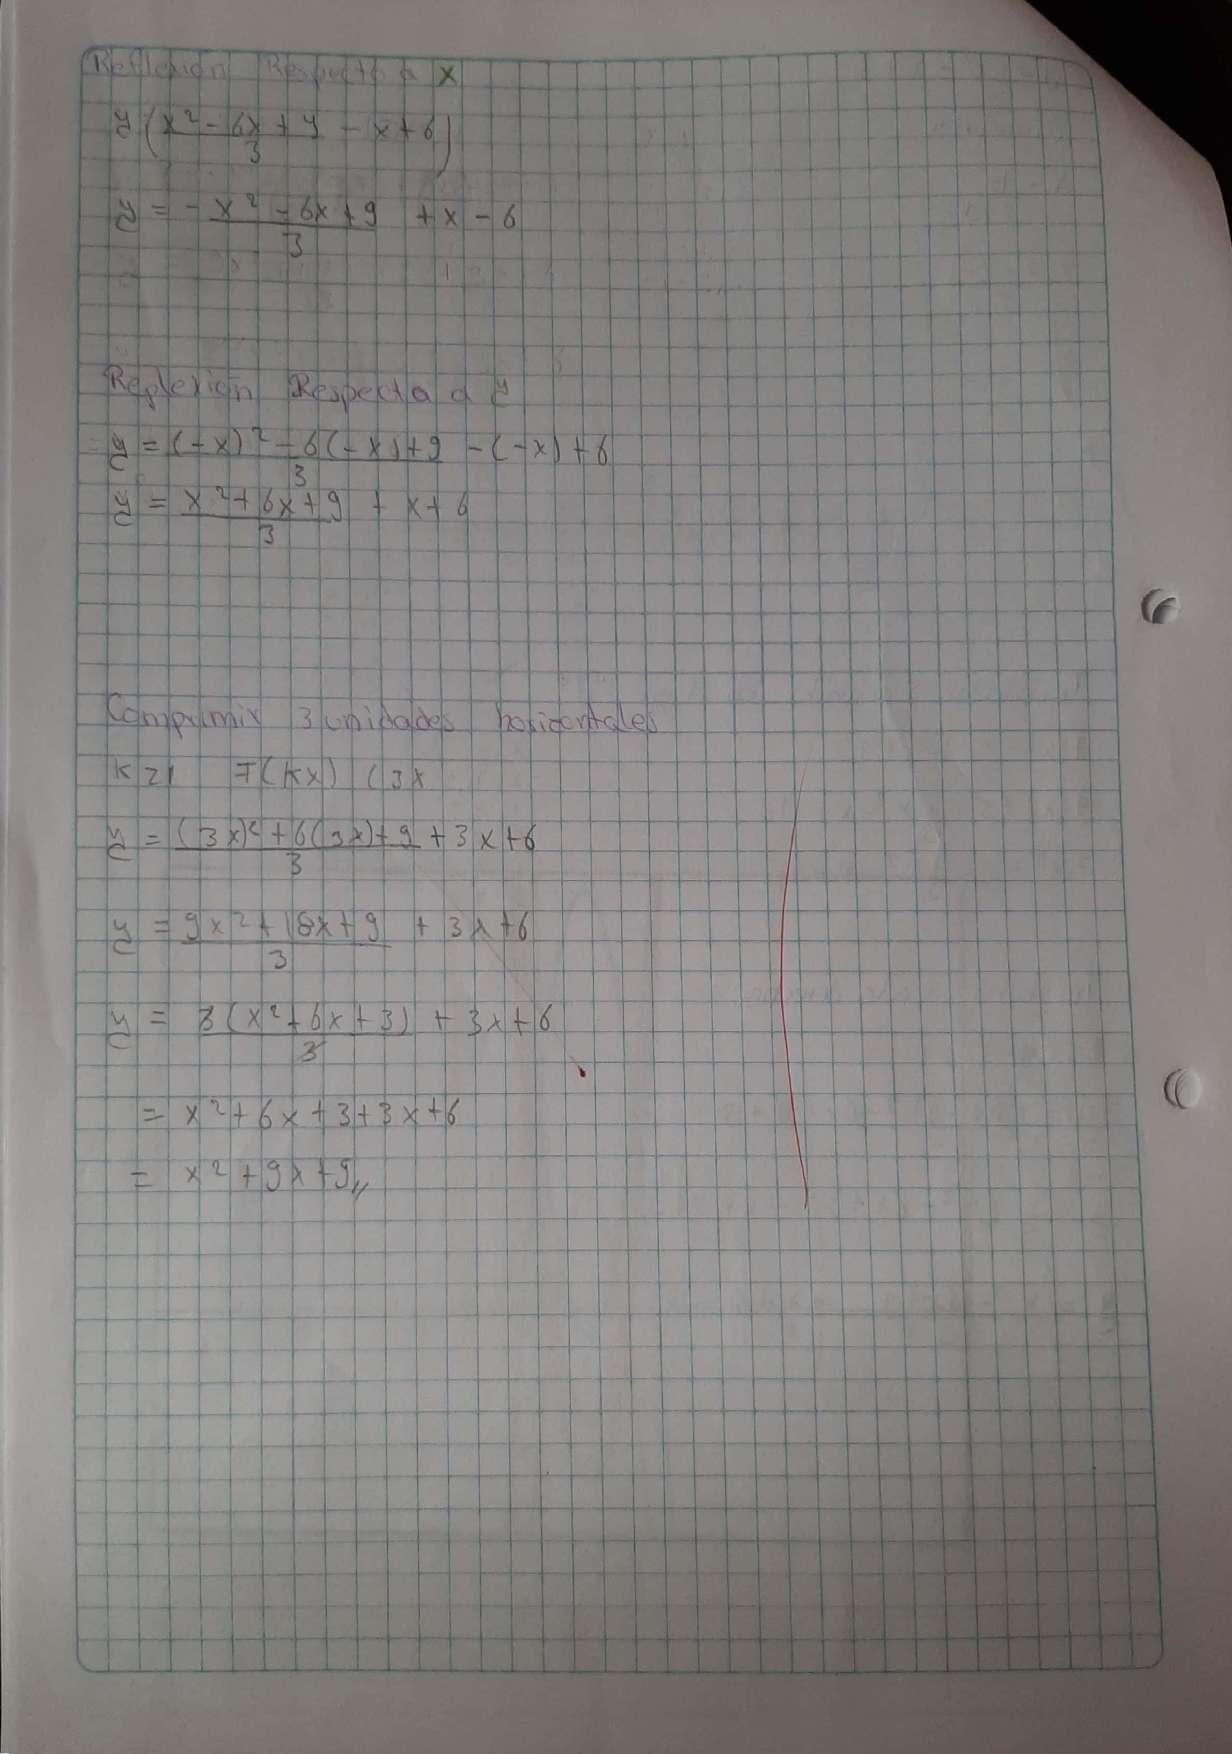 Reflexión Respecto a x
y (x² - 6x + 9 / 3 - x + 6)
y = - x² - 6x + 9 / 3 + x - 6
Reflexión Respecta a y
y = (-x)² - 6(-x) + 9 / 3 - (-x) + 6
y = x² + 6x + 9 / 3 + x + 6
Comprimir 3 unidades horizontales
K > 1 F(Kx) (3x
y = (3x)² + 6(3x) + 9 / 3 + 3x + 6
y = 9x² + 18x + 9 / 3 + 3x + 6
y = 3(x² + 6x + 3) / 3 + 3x + 6
= x² + 6x + 3 + 3x + 6
= x² + 9x + 9